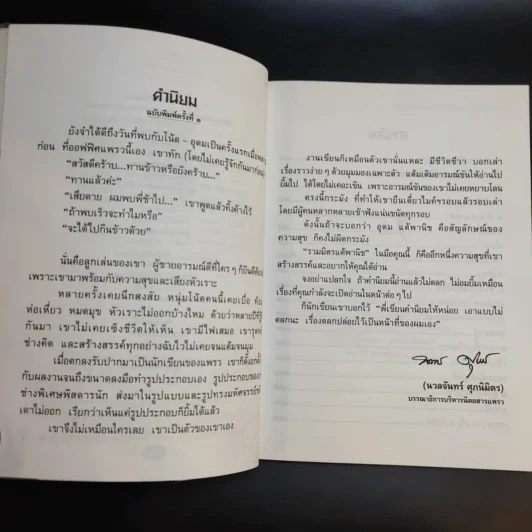 คำนิยม
ฉบับพิมพ์ครั้งที่ ๑
ยังจำได้ดีถึงวันที่พบกับโน้ต - อุดมเป็นครั้งแรกเมื่อ
ก่อน ที่ออฟฟิศแพรวนี้เอง เขาทัก (โดยไม่เคยรู้จักกันมาก่อน)
“สวัสดีคร้าบ...ทานข้าวหรือยังคร้าบ...”
“ทานแล้วค่ะ”
“เสียดาย ผมพบพี่ช้าไป...” เขาพูดแล้วทิ้งค้างไว้
“ถ้าพบเร็วจะทำไมหรือ”
“จะได้ไปกินข้าวด้วย”
นั่นคือลูกเล่นของเขา ผู้ชายอารมณ์ดีที่ใคร ๆ ก็ยินดีต้อนรับ
เพราะเขามาพร้อมกับความสุขและเสียงหัวเราะ
หลายครั้งเคยนึกสงสัย หนุ่มโน้ตคนนี้เคยเบื่อ
ห่อเหี่ยว หมดมุข หัวเราะไม่ออกบ้างไหม ด้วยว่าหลายปีที่รู้จัก
กันมา เขาไม่เคยเซ็งชีวิตให้เห็น เขามีไฟเสมอ
ช่างคิด และสร้างสรรค์ทุกอย่างฉับไวไม่เคยจนแต้มจนมุม
เมื่อตกลงรับปากมาเป็นนักเขียนของแพรว เขาก็ตั้งอกตั้งใจ
กับผลงานจนถึงขนาดลงมือทำรูปประกอบเอง รูปประกอบของเขา
ช่างพิเศษพิสดารนัก ส่งมาในรูปแบบและรูปทรงมหัศจรรย์
เดาไม่ออก เรียกว่าเห็นแค่รูปประกอบก็ยิ้มได้แล้ว
เขาจึงไม่เหมือนใครเลย เขาเป็นตัวของเขาเอง
งานเขียนก็เหมือนตัวเขานั่นแหละ มีชีวิตชีวา บอกเล่า
เรื่องราวง่าย ๆ ด้วยมุมมองเฉพาะตัว แต้มเติมอารมณ์ขันให้อ่านไป
ยิ้มไป ได้โดยไม่เคอะเขิน เพราะอารมณ์ขันของเขาไม่เคยหยาบโลน
ตรงนี้กระมัง ที่ทำให้เขายืนเดี่ยวไมค์ครอบแล้วรอบเล่า
โดยมีผู้คนหลากหลายเข้าฟังแน่นขนัดทุกรอบ
ดังนั้นถ้าจะบอกว่า อุดม แต้พานิช คือสัญลักษณ์ของ
ความสุข ก็คงไม่ผิดกระมัง
“รวมมิตรแต้พานิช” ในมือคุณนี้ ก็คืออีกหนึ่งความสุขที่เขา
สร้างสรรค์และอยากให้คุณได้อ่าน
จงอย่าแปลกใจ ถ้าคำนิยมนี้อ่านแล้วไม่ตลก ไม่อมยิ้มเหมือน
เรื่องที่คุณกำลังจะเปิดอ่านในหน้าต่อ ๆ ไป
ก็นักเขียนเขาบอกไว้ “พี่เขียนคำนิยมให้หน่อย เอาแบบไม่
ตลกนะ เรื่องตลกปล่อยไว้เป็นหน้าที่ของผมเอง”
(นวลจันทร์ ศุภนิมิตร)
บรรณาธิการบริหารนิตยสารแพรว